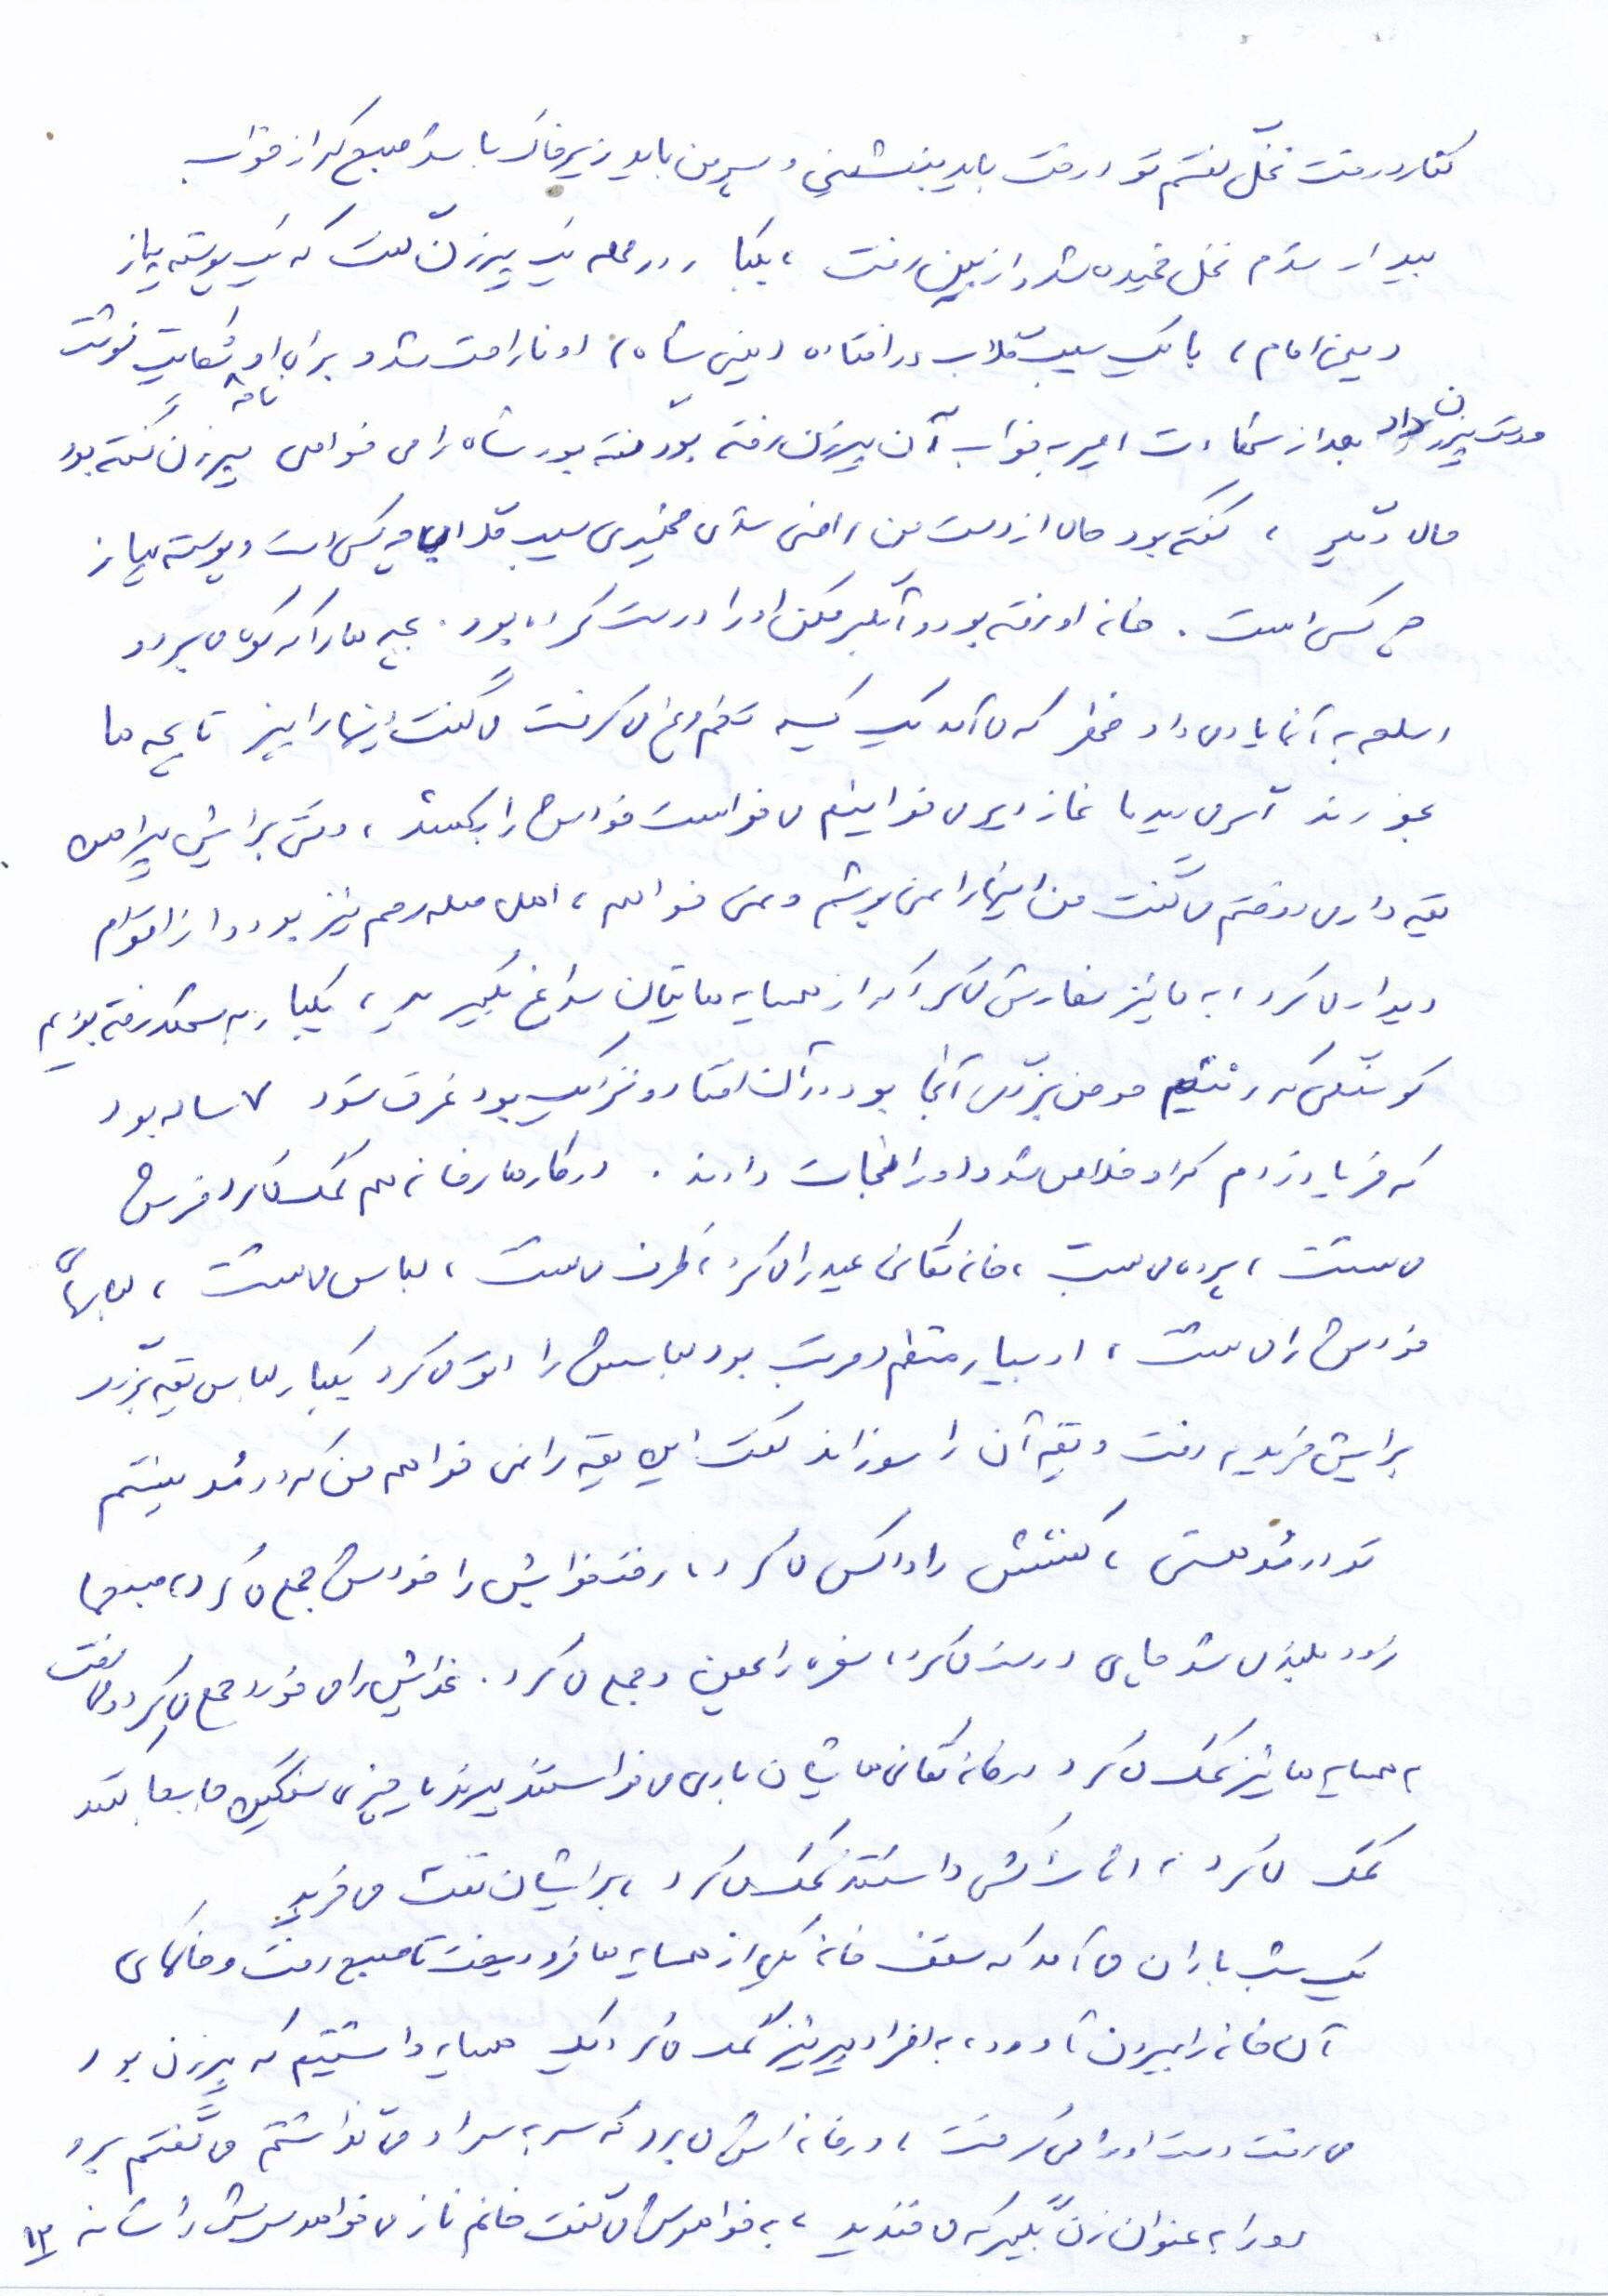 کنار درخت نخل گفتم تو درخت باید بنشینی و پسر من باید زیر خاک باشد صبح که از خواب
بیدار شدم نخل خمیده شد و از بین رفت ، یکبار در محله یک پیرزن گفت که یک پوسته پیاز
(یعنی امام) با یک سیب گلاب در افتاده (یعنی شاه) ، او ناراحت شد و برای او شکایت نامه نوشت
دست پیرزن داد بعد از شهادت امیر به خواب آن پیرزن رفته بود گفته بود شاه را می خواهی پیرزن گفته بود
حالا دیگر ، گفته بود حالا از دست من راضی شدی فهمیدی سیب گلاب چه کس است و پوسته پیاز
چه کس است . خانه او رفته بود و آبگرمکن او را درست کرده بود . بچه ها را که کوه می برد و
اسلحه به آنها یاد می داد خطر که می آمد یک کیسه تخم مرغ می گرفت می گفت اینها را بپز تا بچه ها
بخورند اگر می دید ما نماز دیر می خوانیم می خواست خودش را بکشد ، وقتی برایش پیراهن
یقه داری دوختم می گفت من اینها را نمی پوشم و نمی خواهم ، اهل صله رحم نیز بود و از اقوام
دیدار می کرد ، به ما نیز سفارش می کرد که از همسایه هایتان سراغ بگیرید ، یکبار به رفته بودیم
که رفتیم حوض بزرگی آنجا بود در آن افتاد و نزدیک بود غرق شود ۷ ساله بود
که فریاد زدم که او خلاص شد و او را نجات دادند . در کارهای خانه هم کمک می کرد فرش
می شست ، پرده می بست ، خانه تکانی عید را می کرد ، ظرف می شست ، لباس می شست ، لباسهای
خودش را می شست ، او بسیار منظم و مرتب بود لباسش را اتو می کرد یکبار لباس یقه بزرگ
برایش خریدیم رفت و یقه آن را سوزاند گفت این یقه را نمی خواهم من که در مد نیستم
تو در مد هستی ، کفشش را واکس می کرد ، رختخوابش را خودش جمع می کرد ، صبحها
زود بلند می شد چای درست می کرد ، سفره را پهن و جمع می کرد . غذایش را می خورد جمع می کرد و می رفت
به همسایه ها نیز کمک می کرد در خانه تکانی هایشان باری می خواستند ببرند یا چیزی سنگین جابجا کنند
کمک می کرد ، اثاث کشی داشتند کمک می کرد ، برایشان نفت می خرید
یک شب باران می آمد که سقف خانه یکی از همسایه ها فرو ریخت تا صبح رفت و خاکهای
آن خانه را بیرون آورد ، به افراد پیر نیز کمک می کرد یک همسایه داشتیم که پیرزن بود
می رفت دست او را می گرفت ، در خانه اش می برد که سر به سر او می گذاشتم می گفتم برو
او را به عنوان زن بگیر که می خندید ، به خواهرش می گفت خانم نازی خواهد سرش را شانه
۱۳